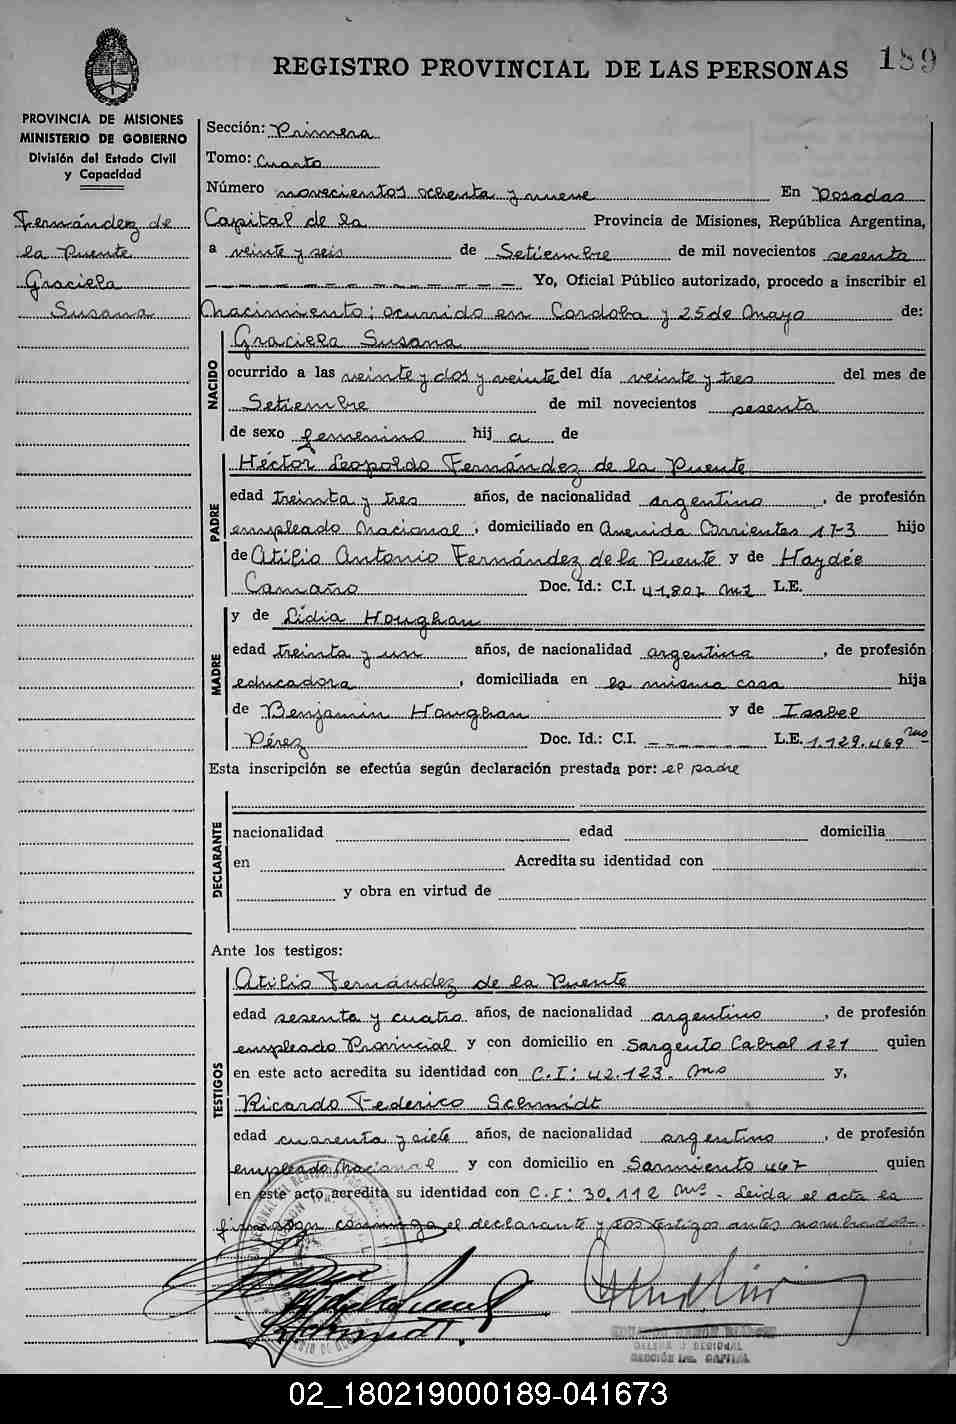 REGISTRO PROVINCIAL DE LAS PERSONAS
189
PROVINCIA DE MISIONES
MINISTERIO DE GOBIERNO
División del Estado Civil
y Capacidad
Fernández de
la Puente
Graciela
Susana
Sección: Primera
Tomo: Cuarto
Número novecientos ochenta y nueve En Posadas
Capital de la Provincia de Misiones, República Argentina,
a veinte y seis de Setiembre de mil novecientos sesenta
Yo, Oficial Público autorizado, procedo a inscribir el
Nacimiento; ocurrido en Cordoba y 25 de Mayo de:
NACIDO
Graciela Susana
ocurrido a las veinte y dos y veinte del día veinte y tres del mes de
Setiembre de mil novecientos sesenta
de sexo femenino hij a de
PADRE
Héctor Leopoldo Fernández de la Puente
edad treinta y tres años, de nacionalidad argentino, de profesión
empleado Nacional, domiciliado en Avenida Corrientes 173 hijo
de Atilio Antonio Fernández de la Puente y de Haydée
Camaño Doc. Id.: C.I. 41.807 Ms L.E.
MADRE
y de Lidia Houghan
edad treinta y un años, de nacionalidad argentina, de profesión
educadora, domiciliada en la misma casa hija
de Benjamin Houghan y de Isabel
Pérez Doc. Id.: C.I. - - - - - - L.E. 1.129.469
Esta inscripción se efectúa según declaración prestada por: el padre
DECLARANTE
nacionalidad edad domicilia
en Acredita su identidad con
y obra en virtud de
Ante los testigos:
TESTIGOS
Atilio Fernández de la Puente
edad sesenta y cuatro años, de nacionalidad argentino, de profesión
empleado Provincial y con domicilio en Sargento Cabral 121 quien
en este acto acredita su identidad con C.I: 42.123. Mns y,
Ricardo Federico Schmidt
edad cuarenta y siete años, de nacionalidad argentino, de profesión
empleado Nacional y con domicilio en Sarmiento 467 quien
en este acto acredita su identidad con C.I: 30.112 Mns. Leida el acta la
firmaron conmigo el declarante y los testigos antes nombrados.
SECCIÓN DEL CAPITAL
02_180219000189-041673